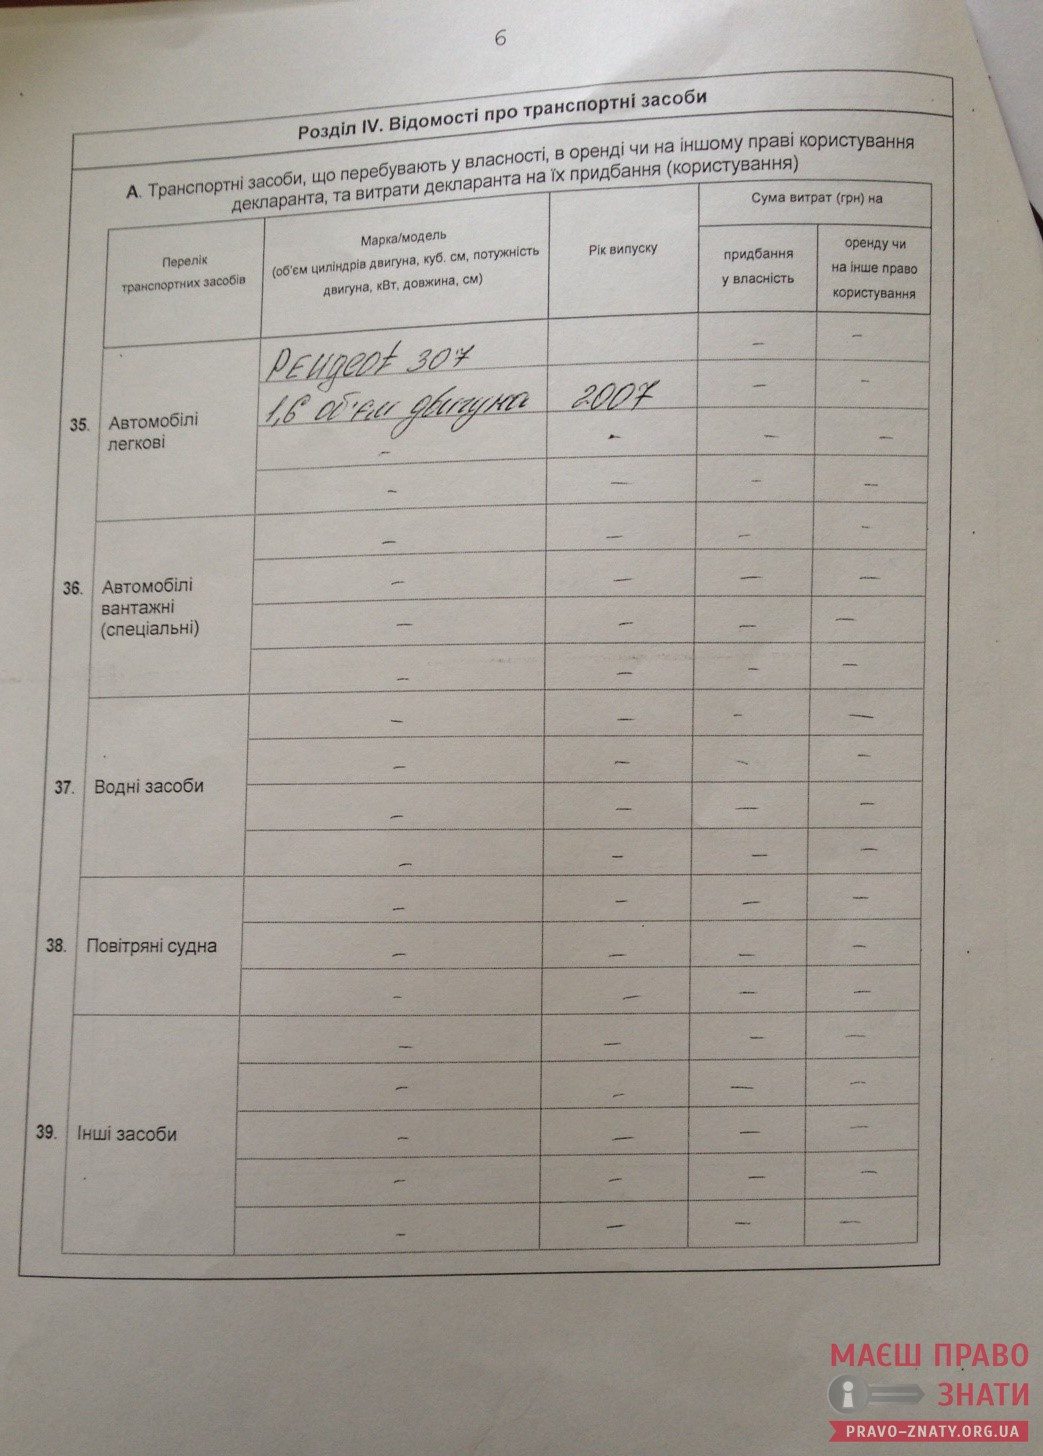 6
Розділ IV. Відомості про транспортні засоби
А. Транспортні засоби, що перебувають у власності, в оренді чи на іншому праві користування
декларанта, та витрати декларанта на їх придбання (користування)
Перелік
транспортних засобів
Марка/модель
(об'єм циліндрів двигуна, куб. см, потужність
двигуна, кВт, довжина, см)
Рік випуску
Сума витрат (грн) на
придбання
у власність
оренду чи
на інше право
користування
35. Автомобілі
легкові
Peugeot 307 – –
1,6 об'єм двигуна 2007 – –
– – – –
– – – –
36. Автомобілі
вантажні
(спеціальні)
– – – –
– – – –
– – – –
– – – –
37. Водні засоби
– – – –
– – – –
– – – –
– – – –
38. Повітряні судна
– – – –
– – – –
– – – –
39. Інші засоби
– – – –
– – – –
– – – –
– – – –
– – – –
МАЄШ ПРАВО
ЗНАТИ
PRAVO-ZNATY.ORG.UA